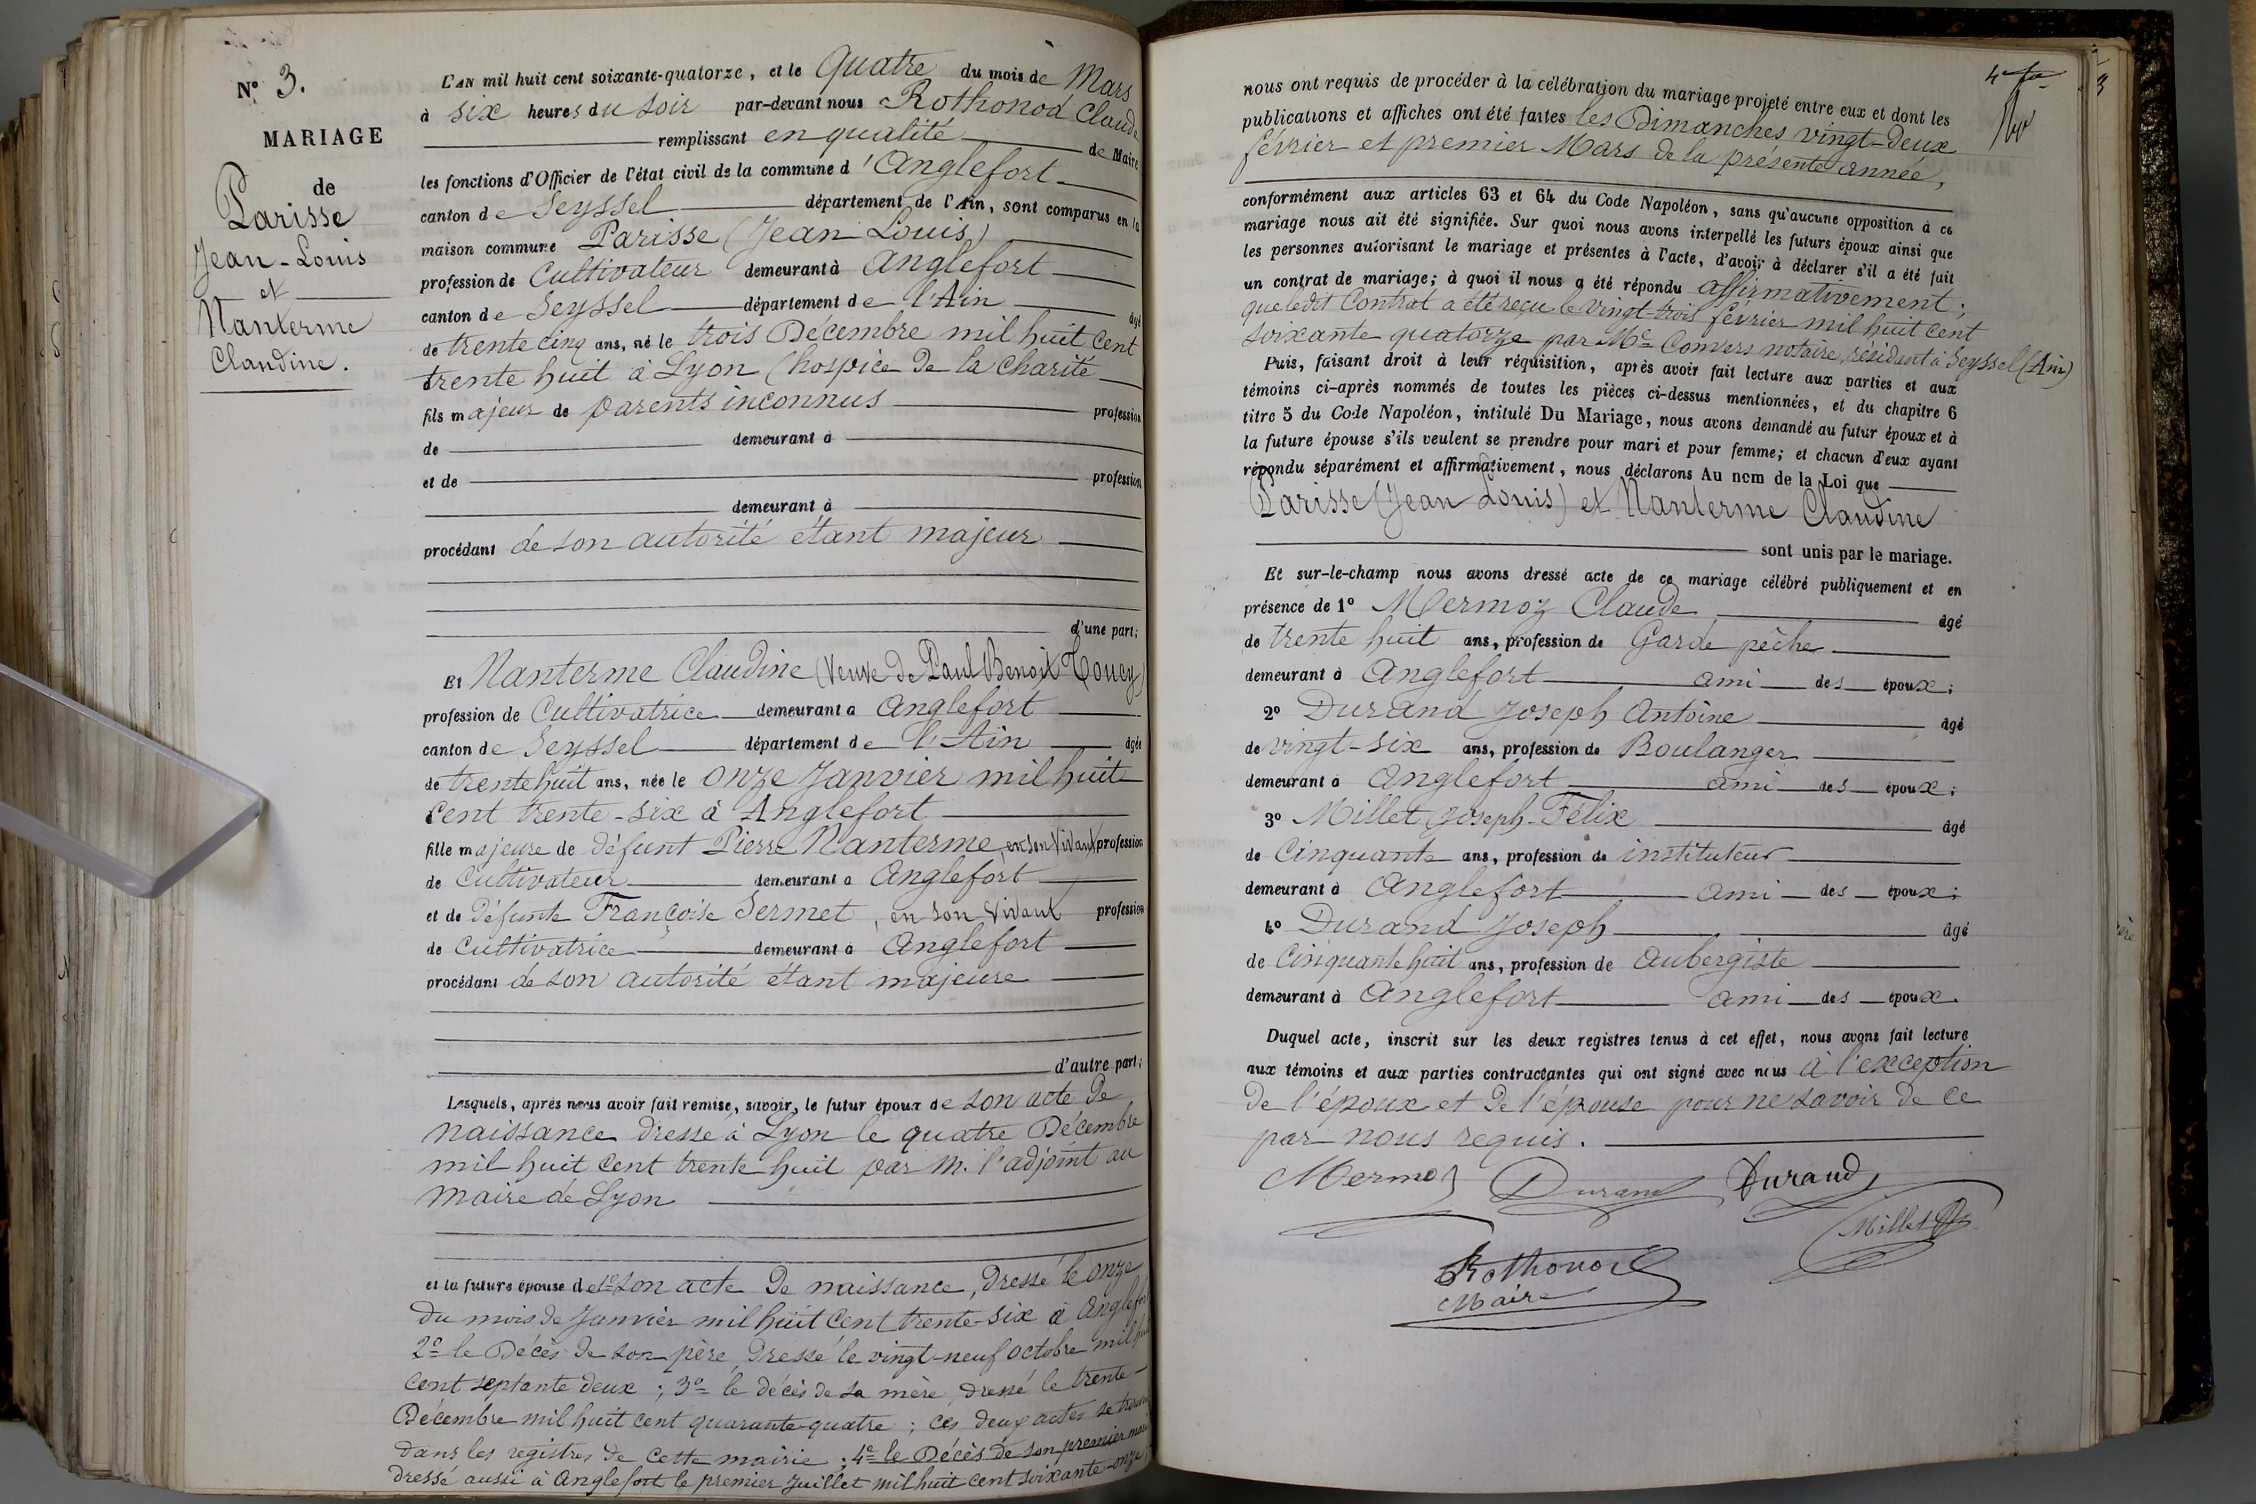 N° 3.
MARIAGE
de
Parisse
Jean-Louis
et
Nanterme
Claudine.
L'AN mil huit cent soixante-quatorze, et le Quatre du mois de Mars
à six heures du soir par-devant nous Rothonod Claude
remplissant en qualité de Maire
les fonctions d'Officier de l'état civil de la commune d'Anglefort
canton de Seyssel département de l'Ain, sont comparus en la
maison commune Parisse (Jean Louis)
profession de Cultivateur demeurant à Anglefort
canton de Seyssel département de l'Ain âgé
de trente cinq ans, né le trois Décembre mil huit cent
trente huit à Lyon (hospice de la charité
fils majeur de parents inconnus profession
de demeurant à
et de profession
demeurant à
procédant de son autorité étant majeur
d'une part;
Et Nanterme Claudine (Veuve de Paul Benoit Toucy)
profession de Cultivatrice demeurant à Anglefort
canton de Seyssel département de l'Ain âgée
de trente huit ans, née le onze Janvier mil huit
cent trente-six à Anglefort
fille majeure de défunt Pierre Nanterme, en son Vivant profession
de Cultivateur demeurant à Anglefort
et de défunte Françoise Sermet, en son Vivant profession
de Cultivatrice demeurant à Anglefort
procédant de son autorité étant majeure
d'autre part;
Lesquels, après nous avoir fait remise, savoir, le futur époux de son acte de
naissance dressé à Lyon le quatre Décembre
mil huit cent trente huit par M. l'adjoint au
maire de Lyon
et la future épouse de 1° son acte de naissance, dressé le onze
du mois de Janvier mil huit cent trente-six à Anglefort
2° le Décès de son père, dressé le vingt-neuf octobre mil huit
cent septante deux; 3° le décès de sa mère, dressé le trente
Décembre mil huit cent quarante-quatre; ces deux actes se trouvent
dans les registres de cette mairie; 4° le Décès de son premier mari
dressé aussi à Anglefort le premier Juillet mil huit cent soixante-onze
nous ont requis de procéder à la célébration du mariage projeté entre eux et dont les
publications et affiches ont été faites les Dimanches vingt-deux
février et premier Mars de la présente année,
conformément aux articles 63 et 64 du Code Napoléon, sans qu'aucune opposition à ce
mariage nous ait été signifiée. Sur quoi nous avons interpellé les futurs époux ainsi que
les personnes autorisant le mariage et présentes à l'acte, d'avoir à déclarer s'il a été fait
un contrat de mariage; à quoi il nous a été répondu affirmativement;
que ledit Contrat a été reçu le vingt-trois février mil huit cent
soixante quatorze par Me Convers notaire résidant à Seyssel (Ain)
Puis, faisant droit à leur réquisition, après avoir fait lecture aux parties et aux
témoins ci-après nommés de toutes les pièces ci-dessus mentionnées, et du chapitre 6
titre 5 du Code Napoléon, intitulé Du Mariage, nous avons demandé au futur époux et à
la future épouse s'ils veulent se prendre pour mari et pour femme; et chacun d'eux ayant
répondu séparément et affirmativement, nous déclarons Au nom de la Loi que
Parisse (Jean Louis) et Nanterme Claudine
sont unis par le mariage.
Et sur-le-champ nous avons dressé acte de ce mariage célébré publiquement et en
présence de 1° Mermoz Claude âgé
de trente huit ans, profession de Garde pêche
demeurant à Anglefort ami des époux;
2° Durand Joseph Antoine âgé
de vingt-six ans, profession de Boulanger
demeurant à Anglefort ami des époux;
3° Millet Joseph-Félix âgé
de Cinquante ans, profession de instituteur
demeurant à Anglefort ami des époux;
4° Durand Joseph âgé
de Cinquante huit ans, profession de Aubergiste
demeurant à Anglefort ami des époux.
Duquel acte, inscrit sur les deux registres tenus à cet effet, nous avons fait lecture
aux témoins et aux parties contractantes qui ont signé avec nous à l'exception
de l'époux et de l'épouse pour ne savoir de ce
par nous requis.
Mermoz Durand Durand
Millet
Rothonod
Maire